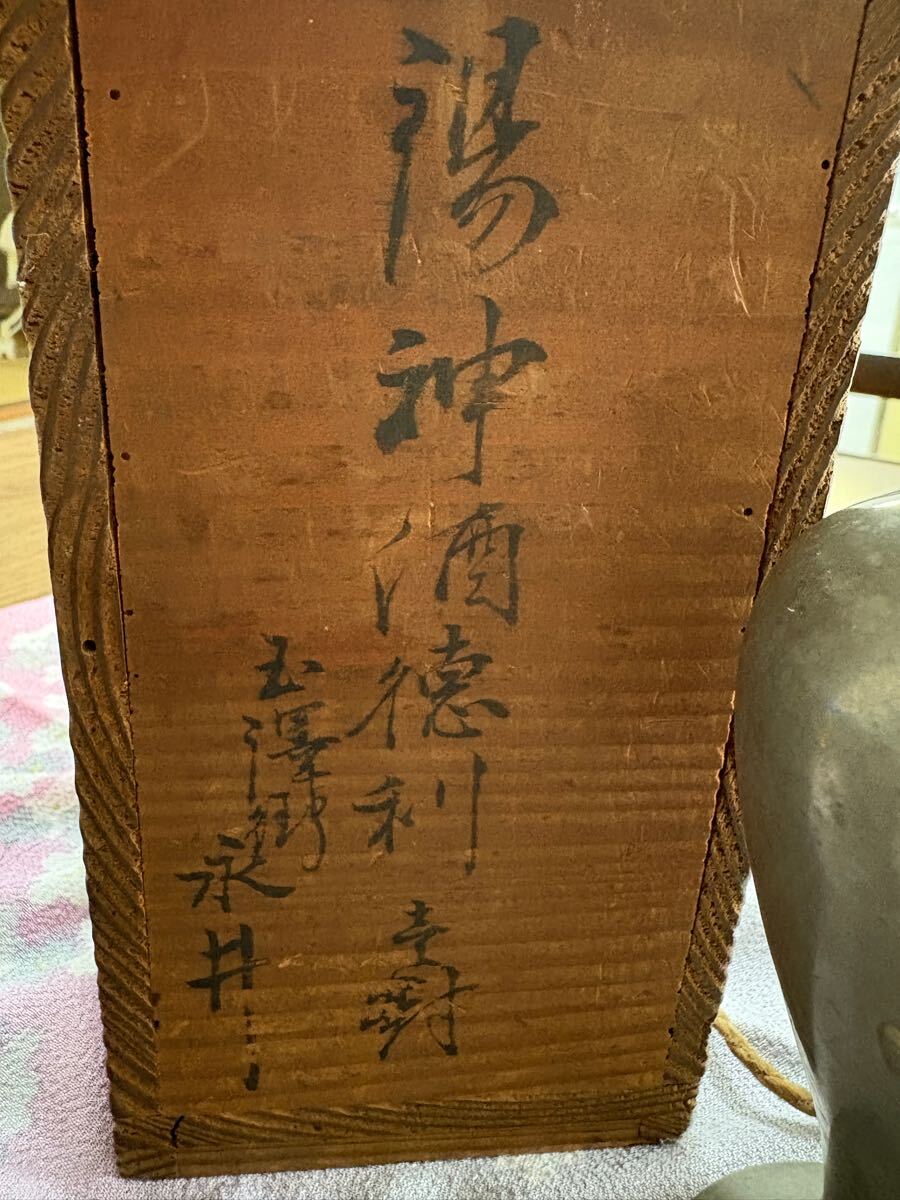 錫神酒徳利 壱對
玉澤 永井